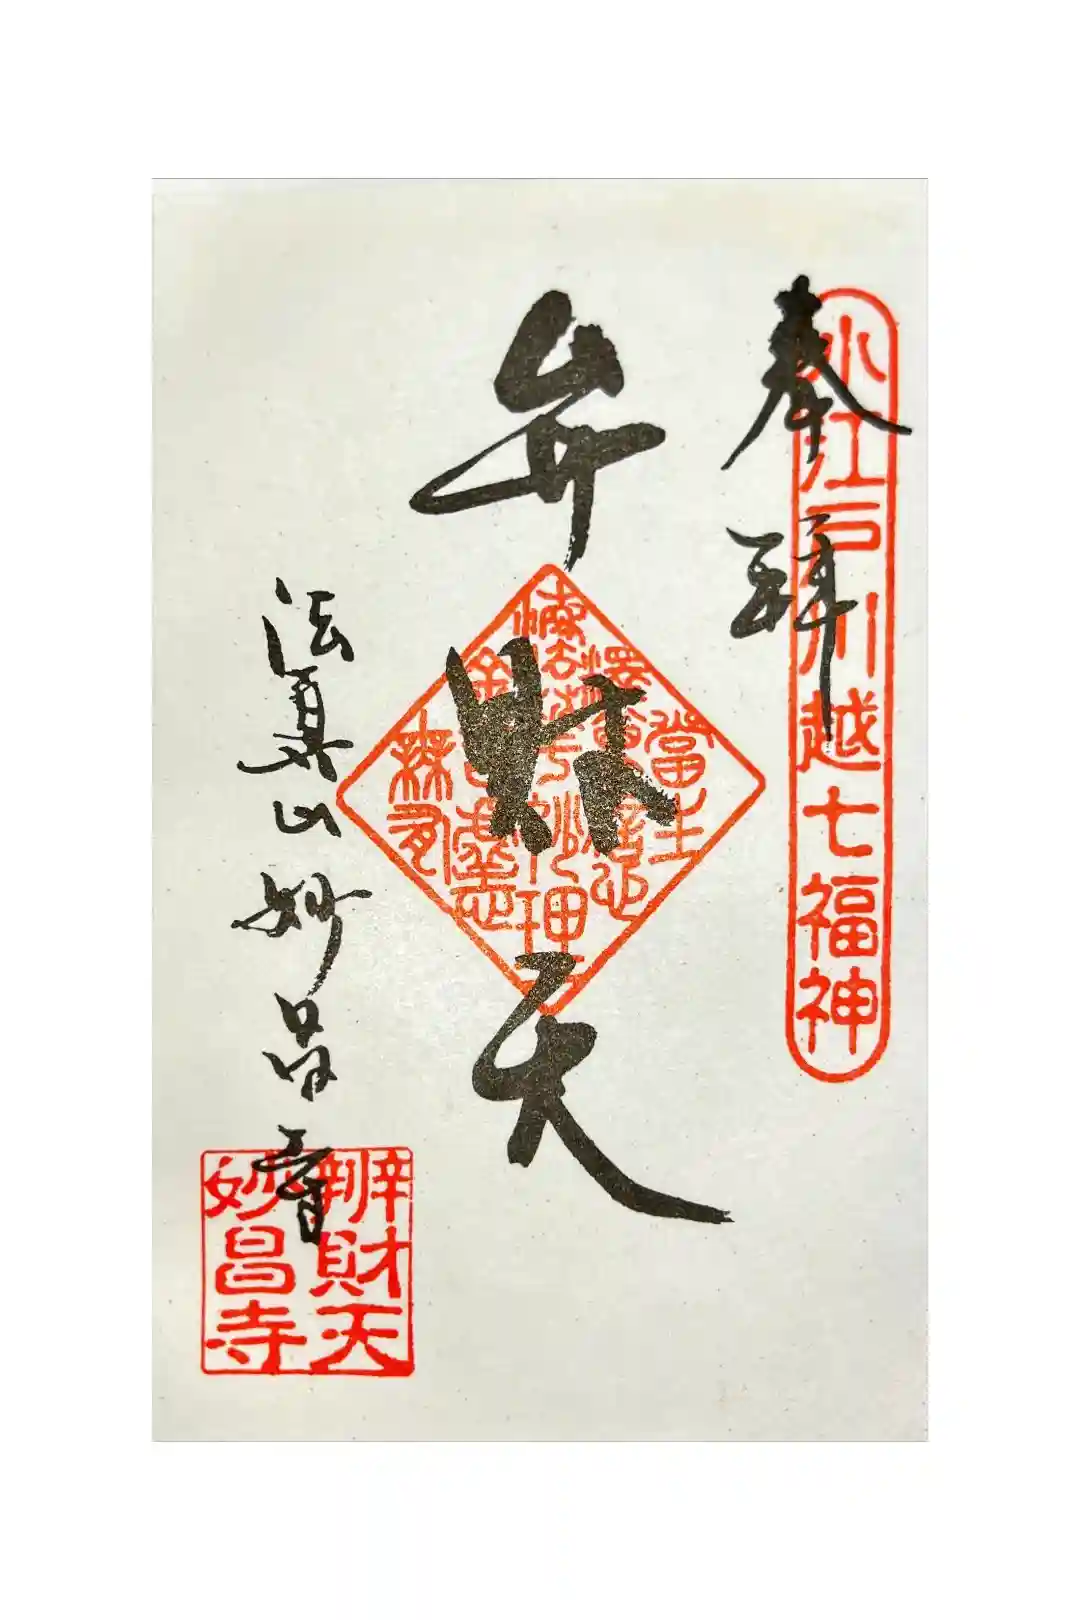 奉拝
小江戸川越七福神
弁財天
法眞山妙昌寺
辨財天
妙昌寺